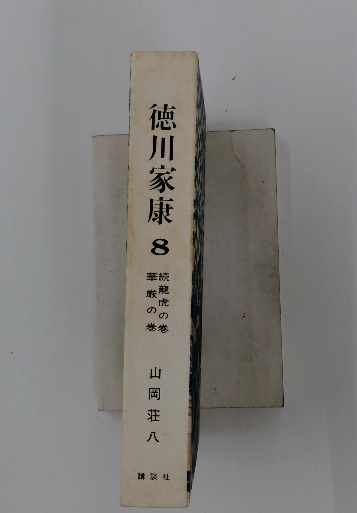 徳川家康
8
続龍虎の巻
華厳の巻
山岡荘八
講談社